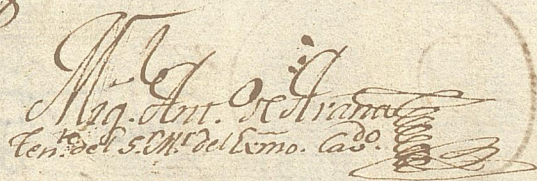 Mig. Ant. de Arana
Ten.te del S. M.r del Exmo. Cav.do